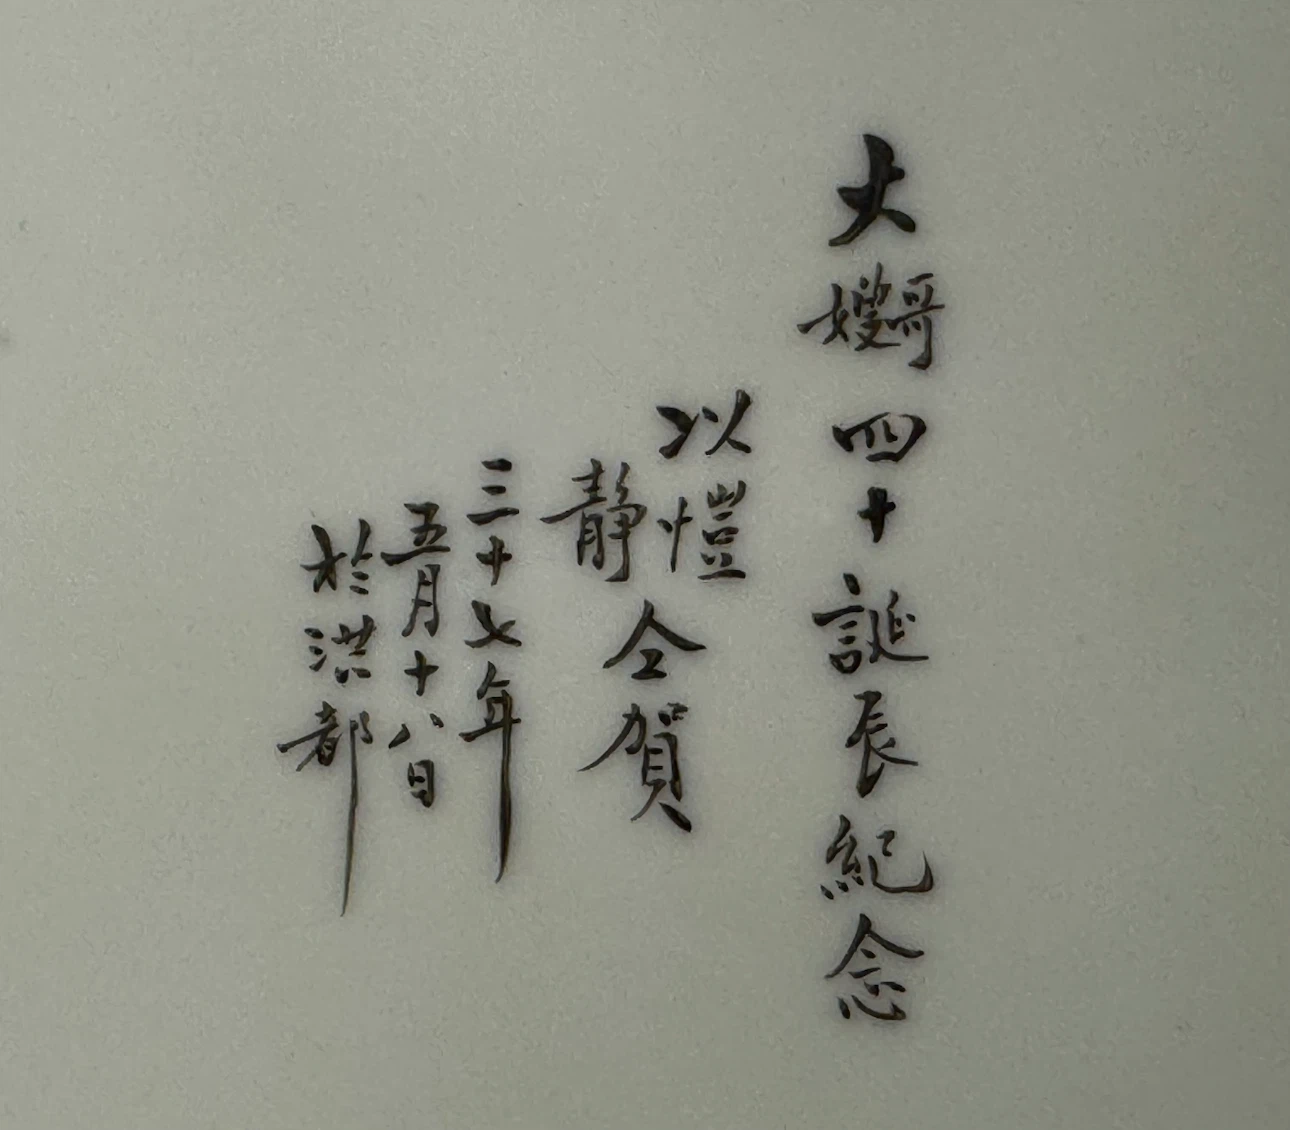 大哥嫂四十誕辰紀念
以愷
靜仝賀
三十七年
五月十八日
於洪都